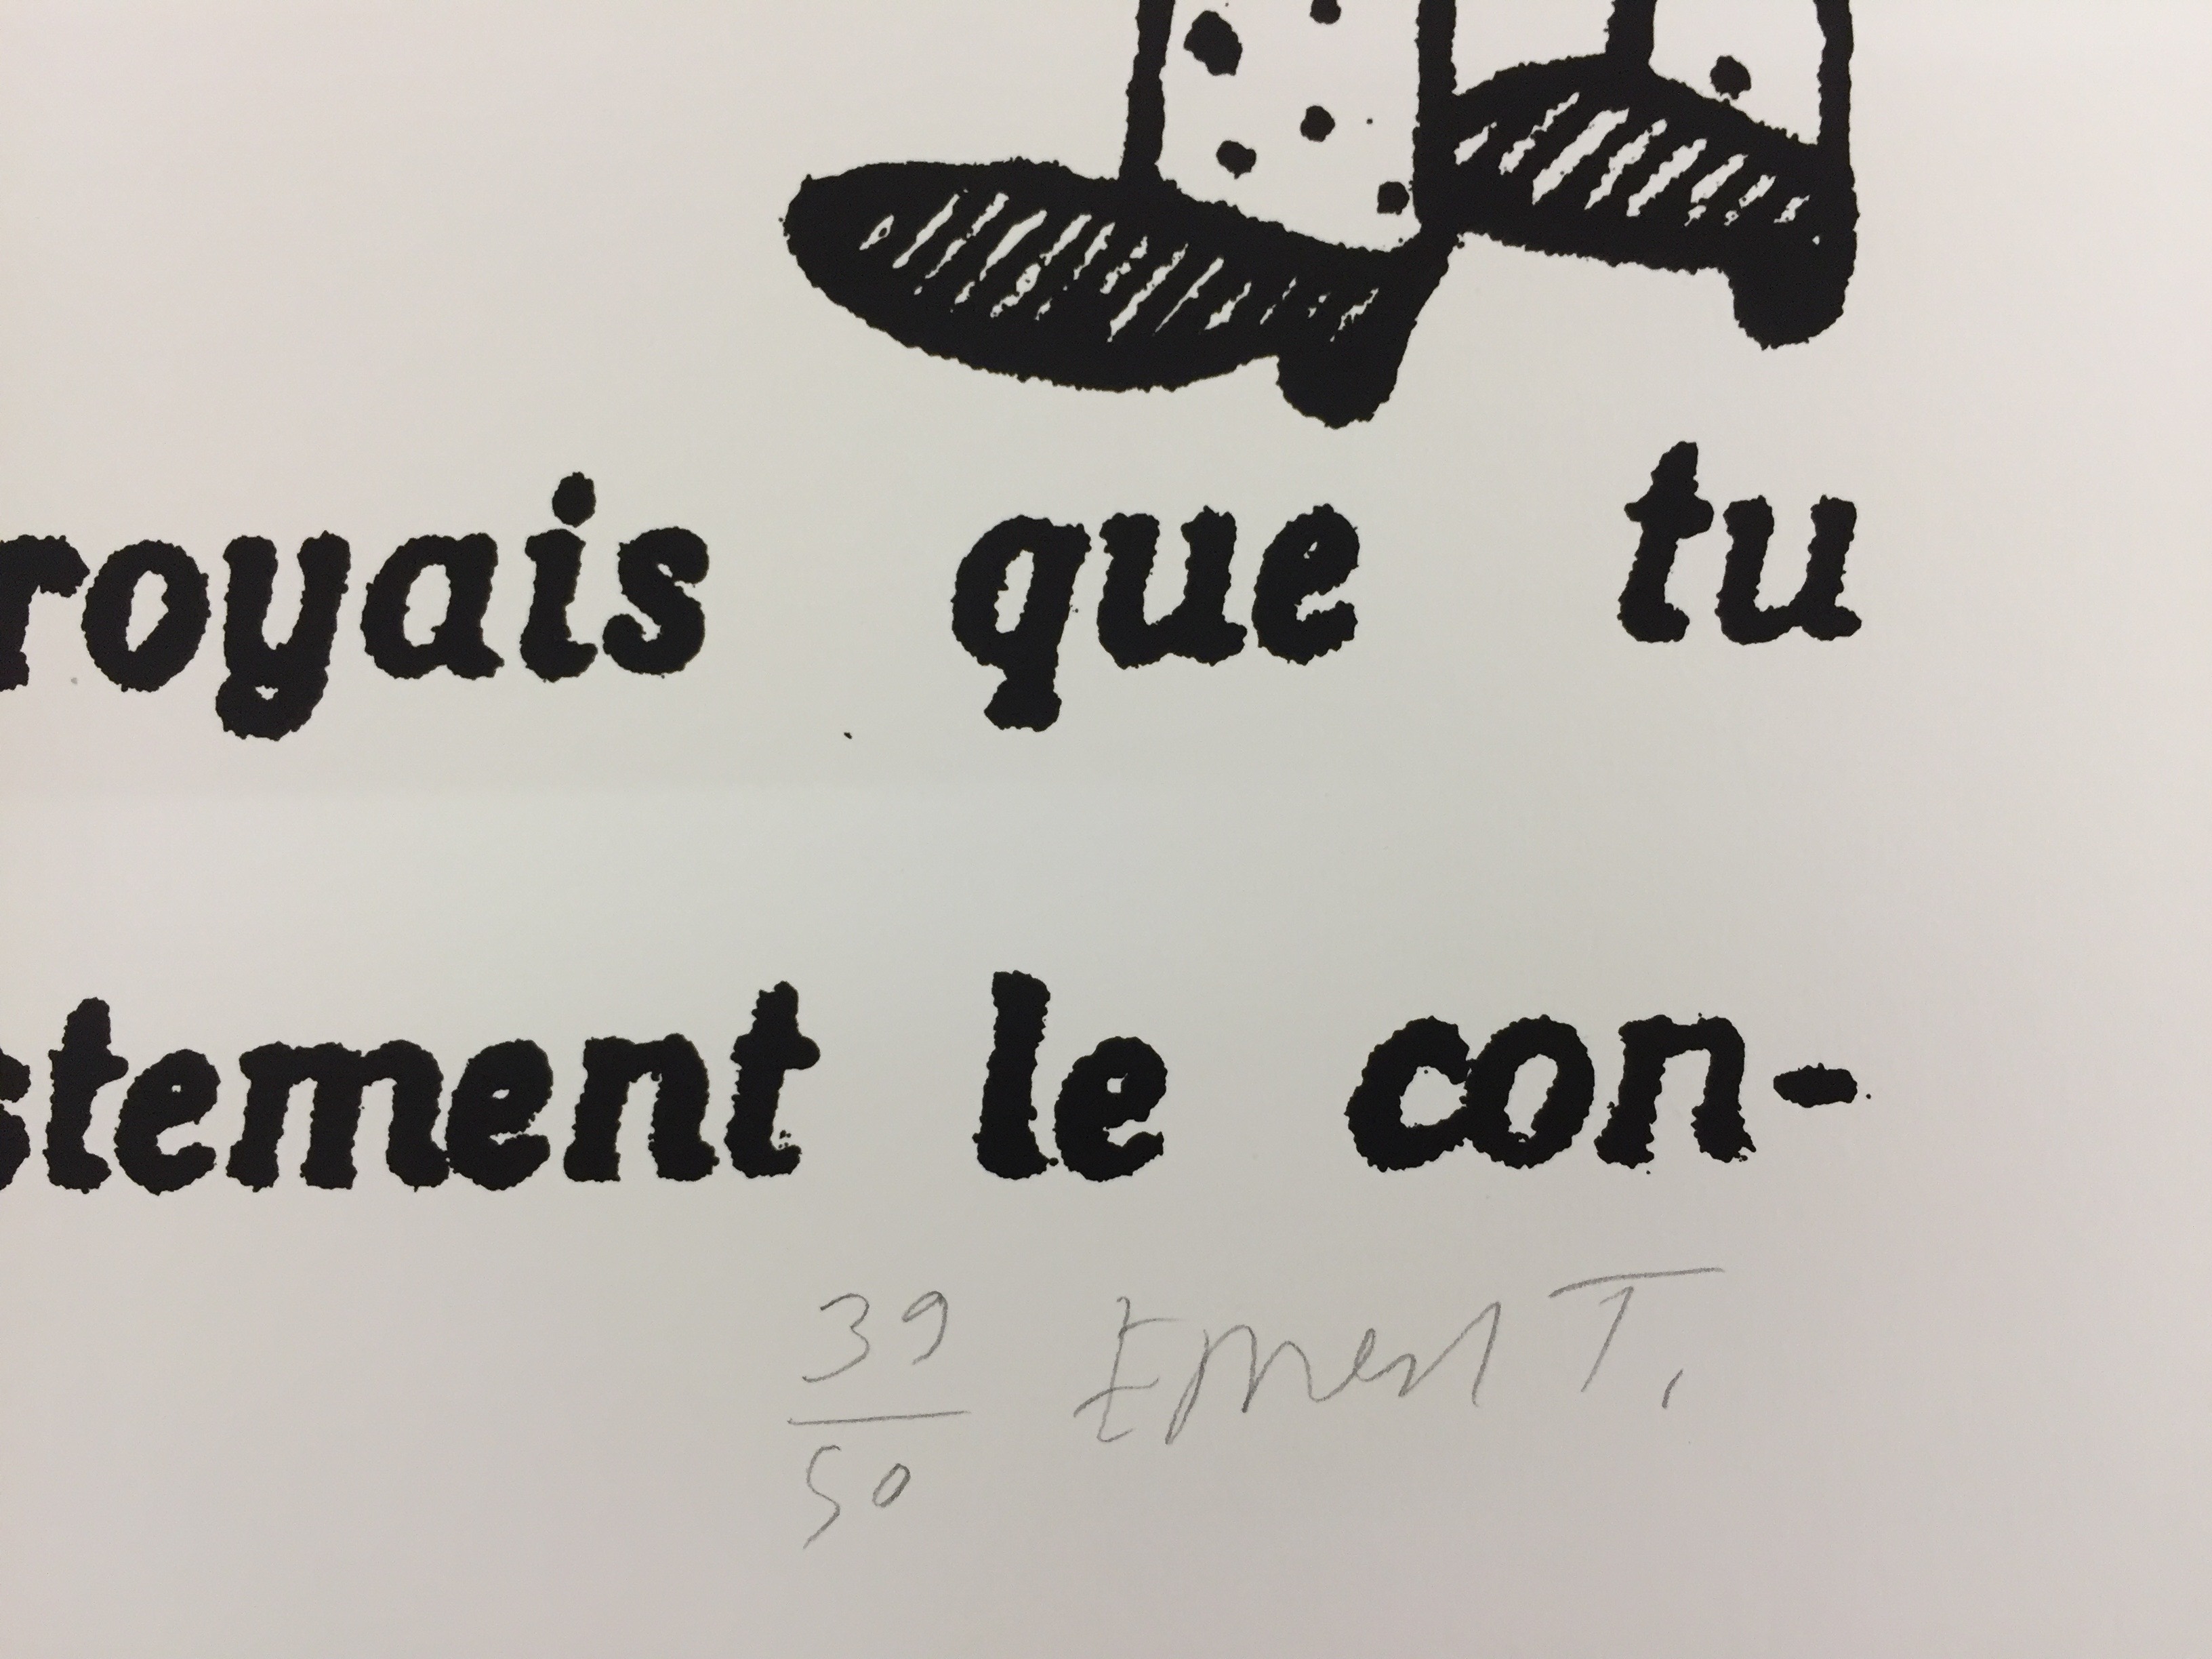 royais que tu
stement le con-
39 Ernest T.
50